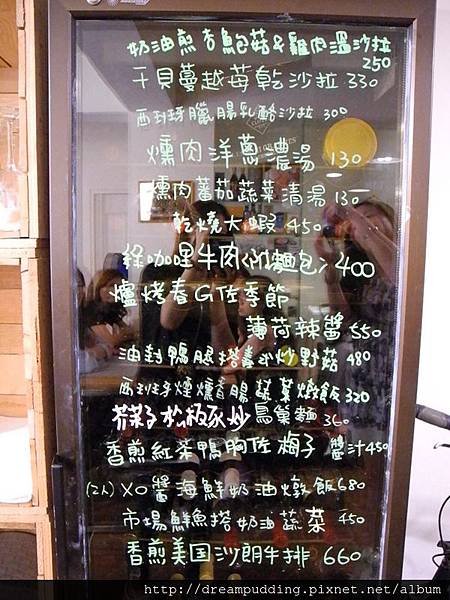 奶油煎杏鮑菇&雞肉溫沙拉
250
干貝蔓越莓乾沙拉 330
西班牙臘腸乳酪沙拉 300
燻肉洋蔥濃湯 130
燻肉蕃茄蔬菜清湯 130
乾燒大蝦 450
綠咖哩牛肉(附麵包) 400
爐烤春G佐季節
薄荷辣醬 550
油封鴨腿搭蒜炒野菇 480
西班牙煙燻香腸蔬菜燉飯 320
芥菜子松板豕炒鳥巢麵 360
香煎紅茶鴨胸佐梅子醬汁 450
(2人) XO醬海鮮奶油燉飯 680
市場鮮魚搭奶油蔬菜 450
香煎美国沙朗牛排 660
http://dreampudding.pixnet.net/album